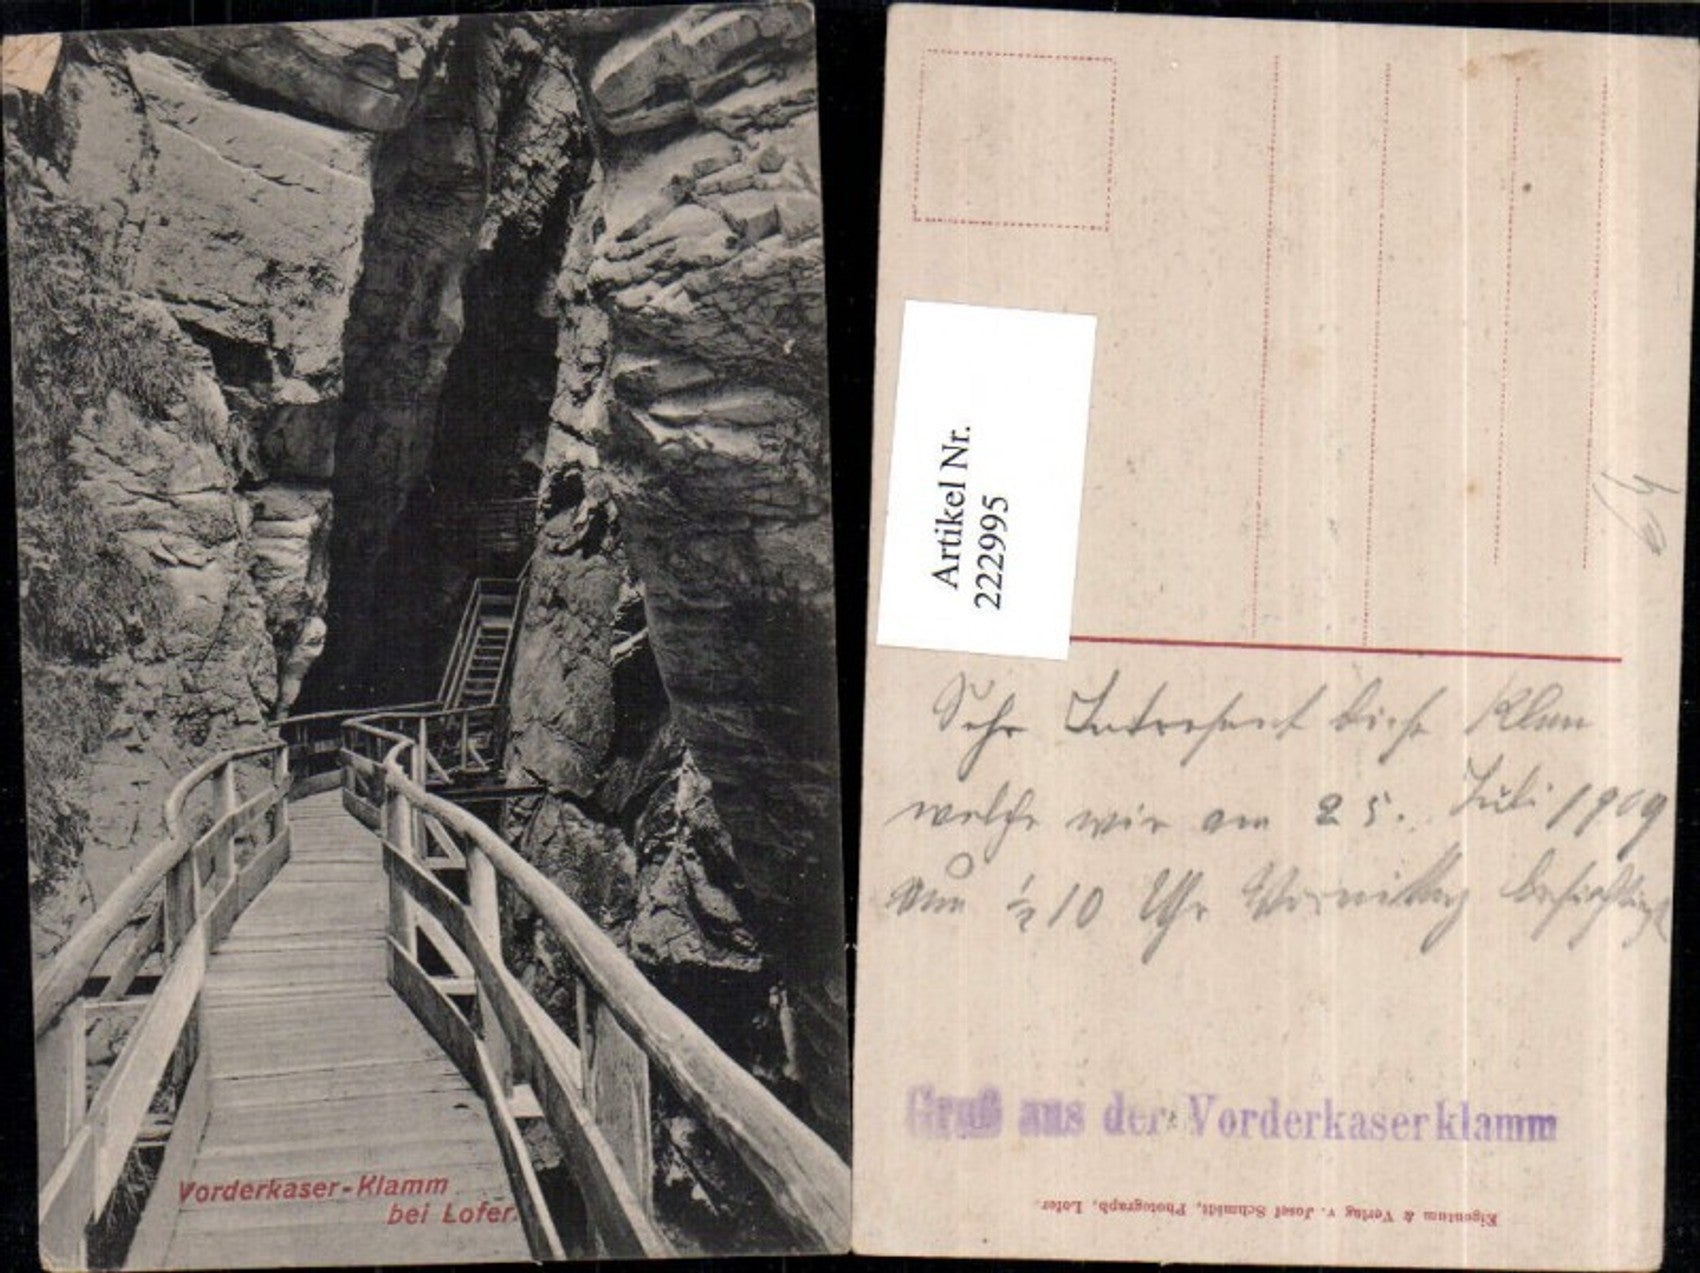 Vorderkaser-Klamm
bei Lofer.
Artikel Nr.
2222995
Sehr Intresant diese Klam
welche wir am 25. Juli 1909
um ½ 10 Uhr Vormittag besichtigt
Gruß aus der Vorderkaserklamm
Eigentum & Verlag v. Josef Schmidt, Photograph, Lofer.